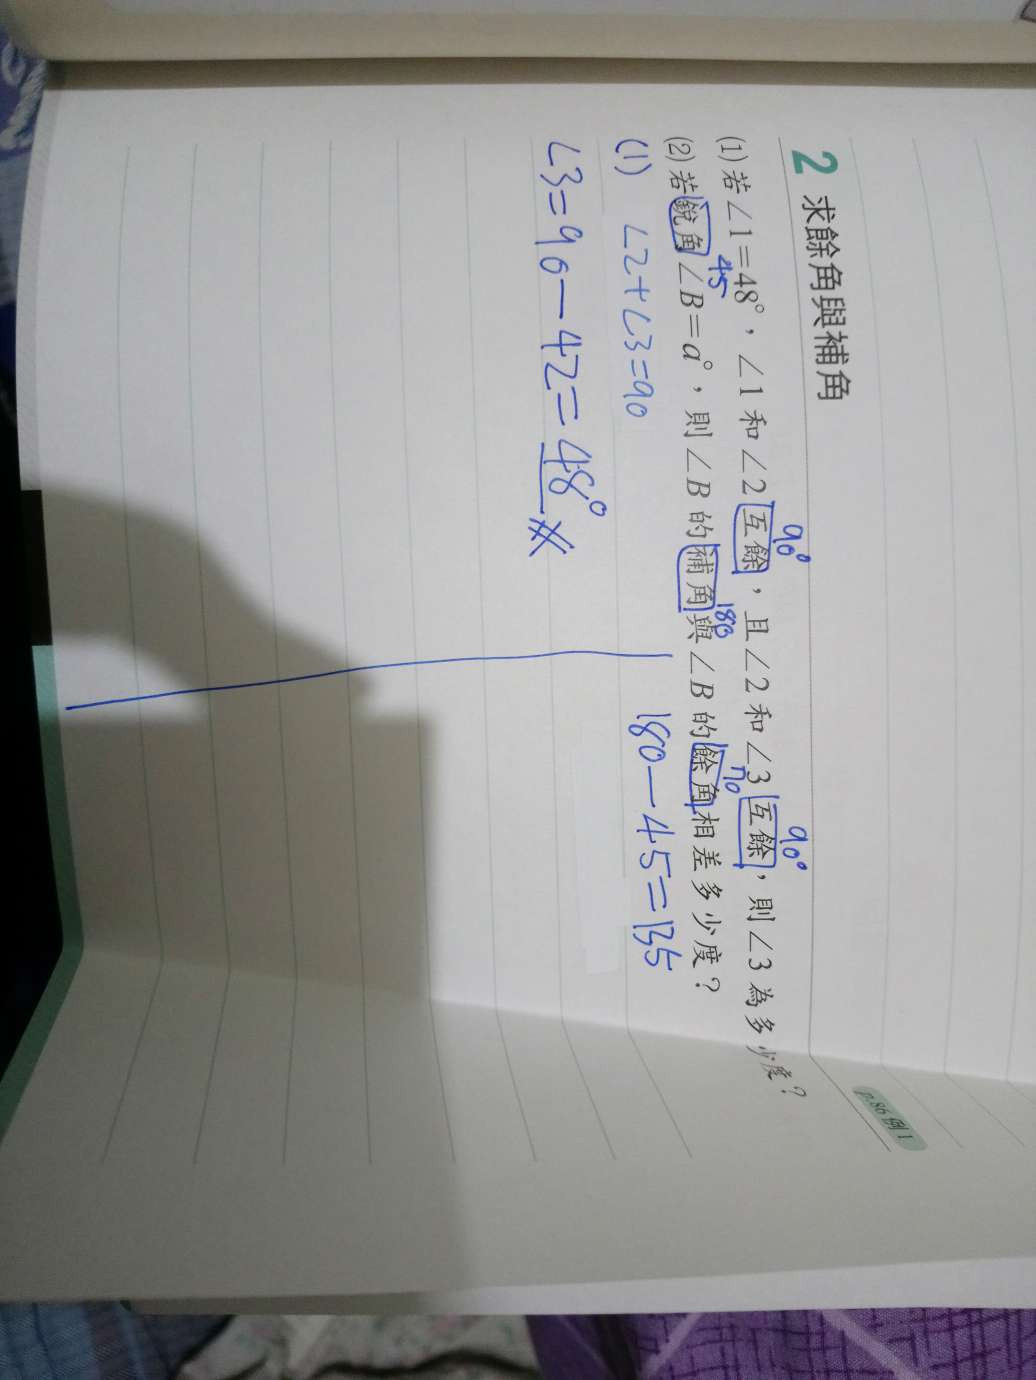 2 求餘角與補角
p.86 例 1
90° 90°
(1) 若∠1=48°,∠1 和∠2 互餘,且∠2 和∠3 互餘,則∠3 為多少度?
45 180 90
(2) 若銳角∠B=a°,則∠B 的補角與∠B 的餘角相差多少度?
(1) ∠2+∠3=90
∠3=90-42=48°
180-45=135